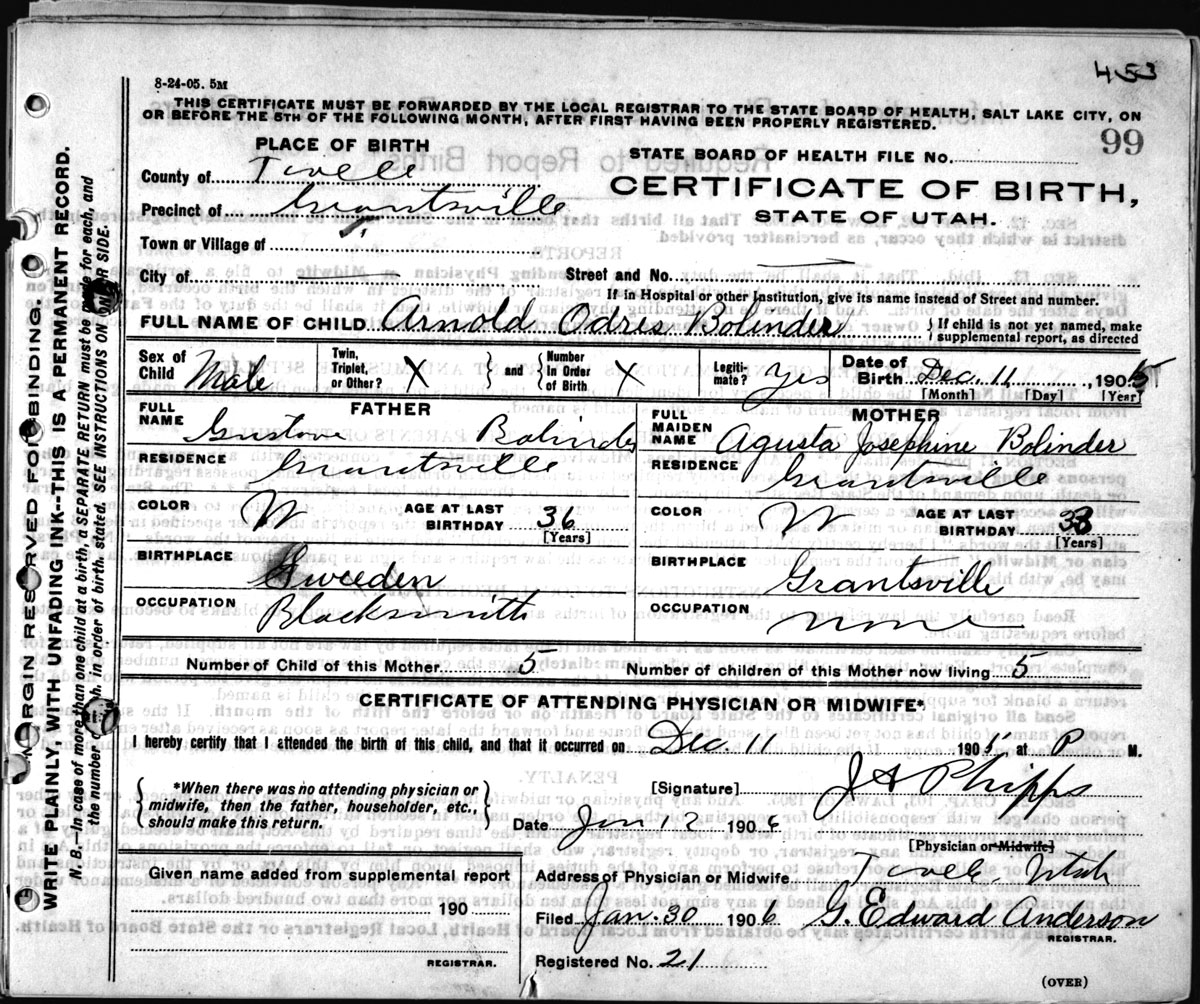 453
8-24-05. 5M
THIS CERTIFICATE MUST BE FORWARDED BY THE LOCAL REGISTRAR TO THE STATE BOARD OF HEALTH, SALT LAKE CITY, ON
OR BEFORE THE 5TH OF THE FOLLOWING MONTH, AFTER FIRST HAVING BEEN PROPERLY REGISTERED.
99
PLACE OF BIRTH
STATE BOARD OF HEALTH FILE No.
County of Tooele
CERTIFICATE OF BIRTH,
Precinct of Grantsville
STATE OF UTAH.
Town or Village of "
City of
Street and No.
If in Hospital or other Institution, give its name instead of Street and number.
FULL NAME OF CHILD Arnold Odres Bolinder
If child is not yet named, make supplemental report, as directed
Sex of Child Male
Twin, Triplet, or Other? X
and
Number in Order of Birth X
Legitimate? Yes
Date of Birth Dec. 11, 1905
[Month] [Day] [Year]
FATHER
FULL NAME Gustave Bolinder
RESIDENCE Grantsville
COLOR W
AGE AT LAST BIRTHDAY 36
[Years]
BIRTHPLACE Sweeden
OCCUPATION Blacksmith
MOTHER
FULL MAIDEN NAME Agusta Josephine Bolinder
RESIDENCE Grantsville
COLOR W
AGE AT LAST BIRTHDAY 33
[Years]
BIRTHPLACE Grantsville
OCCUPATION None
Number of Child of this Mother 5
Number of children of this Mother now living 5
CERTIFICATE OF ATTENDING PHYSICIAN OR MIDWIFE*
I hereby certify that I attended the birth of this child, and that it occurred on Dec. 11 1905 at P M.
*When there was no attending physician or
midwife, then the father, householder, etc.,
should make this return.
[Signature] J A Phipps
Date Jan 12 1906
[Physician or Midwife]
Given name added from supplemental report
190
REGISTRAR.
Address of Physician or Midwife Tooele Utah
Filed Jan. 30 1906 G. Edward Anderson
REGISTRAR.
Registered No. 21
(OVER)
MARGIN RESERVED FOR BINDING.
WRITE PLAINLY, WITH UNFADING INK--THIS IS A PERMANENT RECORD.
N. B.—In case of more than one child at a birth, a SEPARATE RETURN must be made for each, and
the number of each, in order of birth, stated. SEE INSTRUCTIONS ON OTHER SIDE.